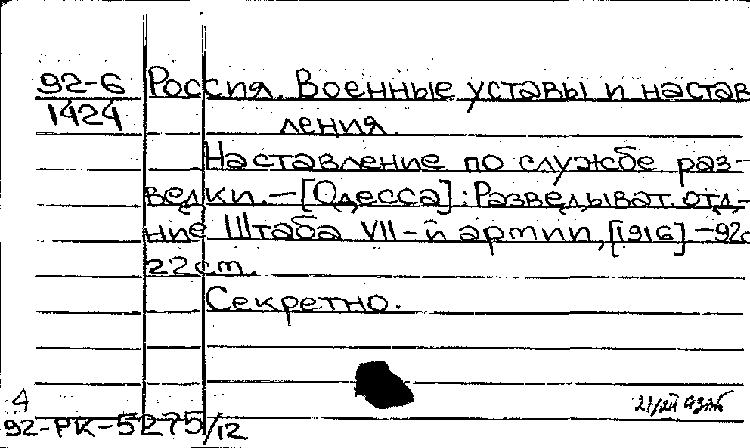 92-6 Россия. Военные уставы и настав
1424 ления.
Наставление по службе раз-
ведки.—[Одесса]: Разведыват. отд-
ние Штаба VII-й армии, [1916]—92с
22 ст.
Секретно.
4
92-РК-5275/12